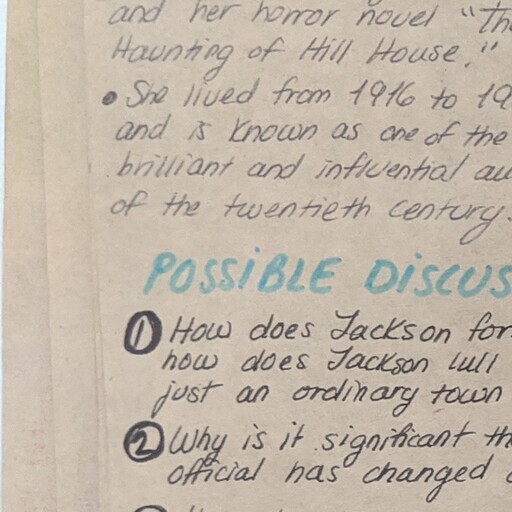 and her horror novel "Th
Haunting of Hill House."
• She lived from 1916 to 19
and is known as one of the
brilliant and influential au
of the twentieth century.
POSSIBLE DISCUS
1 How does Jackson for
how does Jackson lull
just an ordinary town
2 Why is it significant th
official has changed